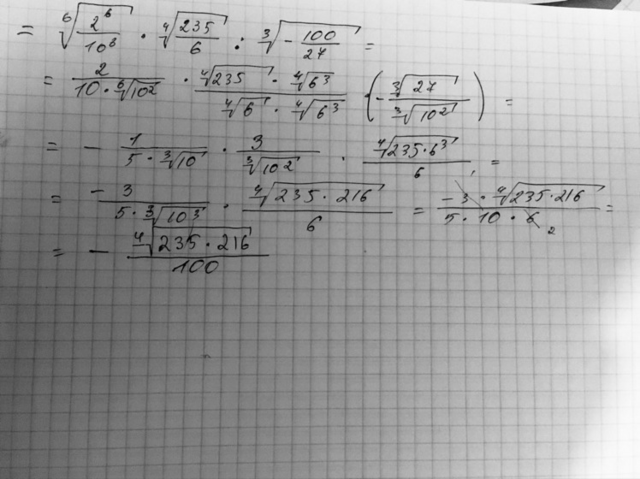 = ⁶√(2⁶/10⁸) · ⁴√(235/6) : ³√(-100/27) =
= 2/(10 · ⁶√10²) · (⁴√235 · ⁴√6³)/(⁴√6 · ⁴√6³) · (-³√27/³√10²) =
= - 1/(5 · ³√10) · 3/³√10² · ⁴√(235·6³)/6 =
= -3/(5 · ³√10³) · ⁴√(235·216)/6 = (-3 · ⁴√(235·216))/(5 · 10 · 6) 2 =
= - ⁴√(235·216)/100